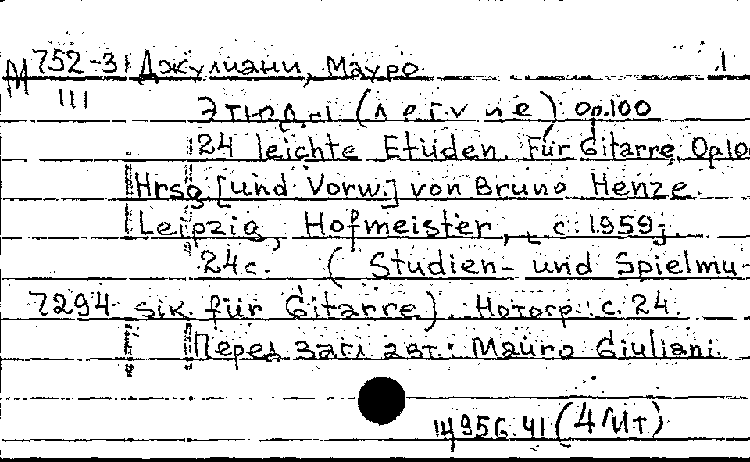 М 752-3 Джулиани, Мауро 1
III
Этюды (легкие) Op.100
24 leichte Etüden. Für Gitarre. Op100
Hrsg. [und Vorw.] von Bruno Henze.
Leipzig, Hofmeister, [c. 1959].
24с. (Studien- und Spielmu-
7294 sik für Gitarre). Нотогр.: с. 24.
Перед загл авт.: Mauro Giuliani.
(4 Ит)